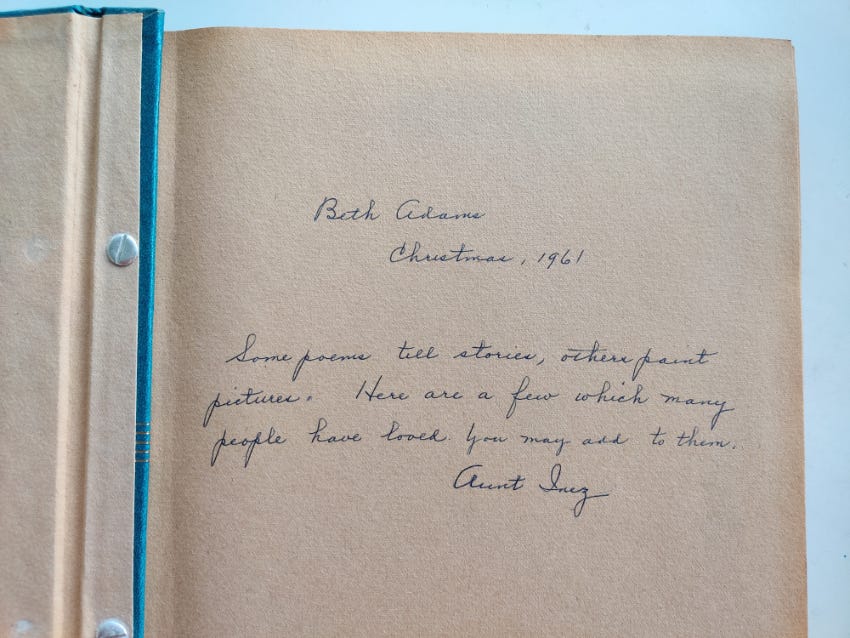 Beth Adams
Christmas, 1961
Some poems tell stories, others paint
pictures. Here are a few which many
people have loved. You may add to them.
Aunt Inez